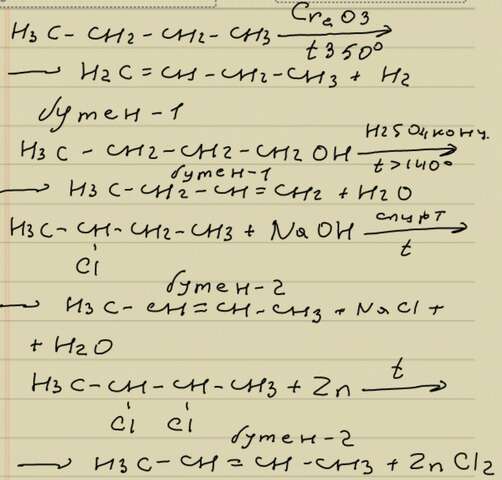 H3C - CH2 - CH2 - CH3 Cr2O3 t 350°
→ H2C = CH - CH2 - CH3 + H2
бутен-1
H3C - CH2 - CH2 - CH2OH H2SO4 конц. t > 140° →
бутен-1
→ H3C - CH2 - CH = CH2 + H2O
H3C - CH - CH2 - CH3 + NaOH спирт t →
Cl
бутен-2
→ H3C - CH = CH - CH3 + NaCl +
+ H2O
H3C - CH - CH - CH3 + Zn t →
Cl Cl
бутен-2
→ H3C - CH = CH - CH3 + ZnCl2